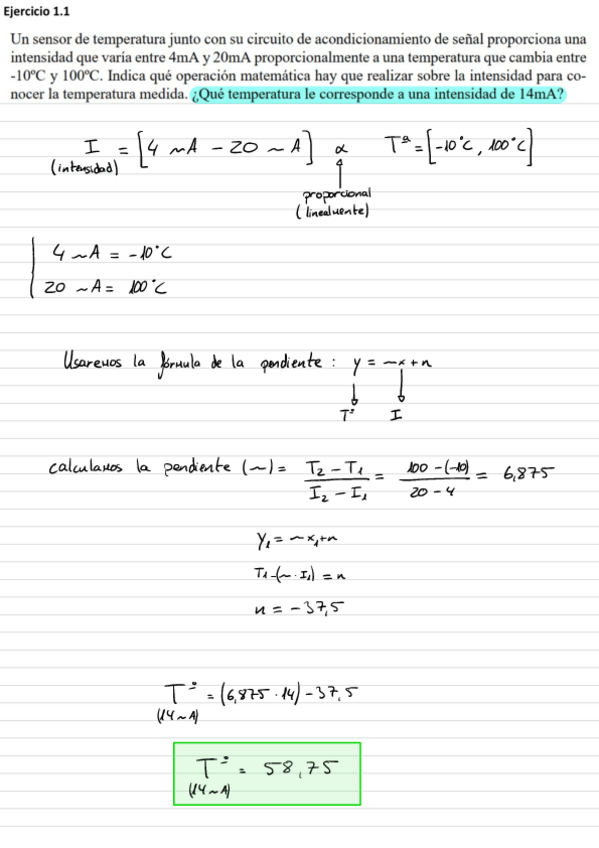 Ejercicio 1.1
Un sensor de temperatura junto con su circuito de acondicionamiento de señal proporciona una
intensidad que varía entre 4mA y 20mA proporcionalmente a una temperatura que cambia entre
-10ºC y 100ºC. Indica qué operación matemática hay que realizar sobre la intensidad para co-
nocer la temperatura medida. ¿Qué temperatura le corresponde a una intensidad de 14mA?
I = [4 mA - 20 mA] α Tª = [-10°C, 100°C]
(intensidad)
proporcional
(linealmente)
4 mA = -10°C
20 mA = 100°C
Usaremos la fórmula de la pendiente : y = mx + n
Tª I
calculamos la pendiente (m) = T₂ - T₁ / I₂ - I₁ = 100 - (-10) / 20 - 4 = 6,875
y₁ = mx₁ + n
T₁ - (m · I₁) = n
n = -37,5
Tª = (6,875 · 14) - 37,5
(14 mA)
Tª = 58,75
(14 mA)